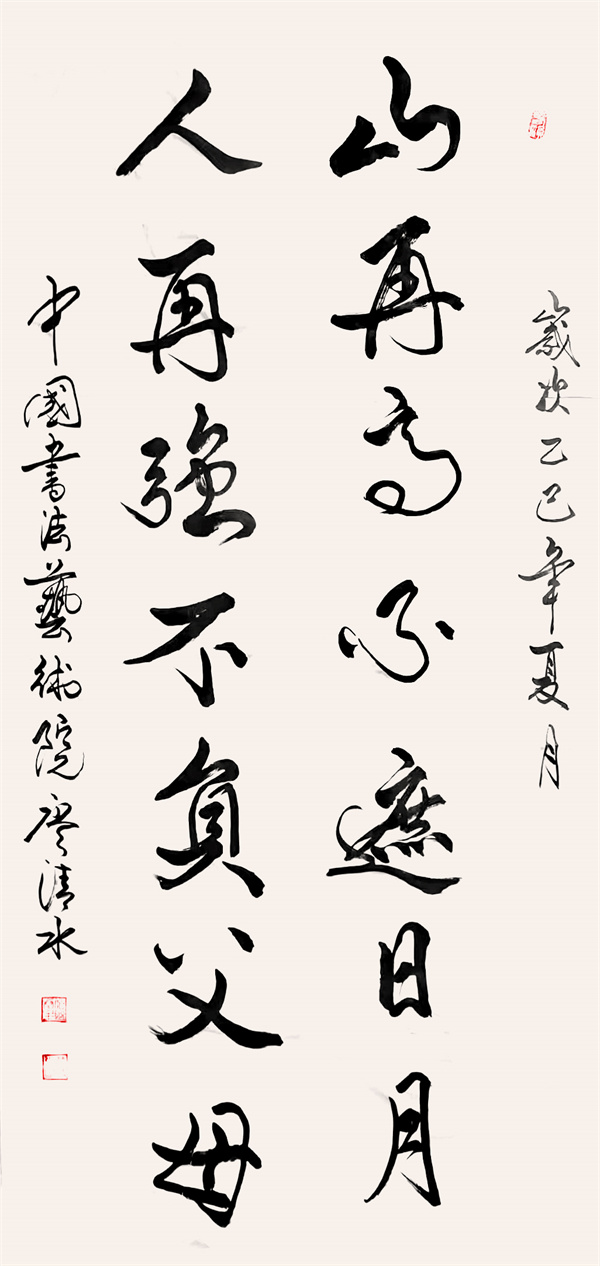 歲次乙巳年夏月
山再高不遮日月
人再強不負父母
中國書法藝術院廖清水